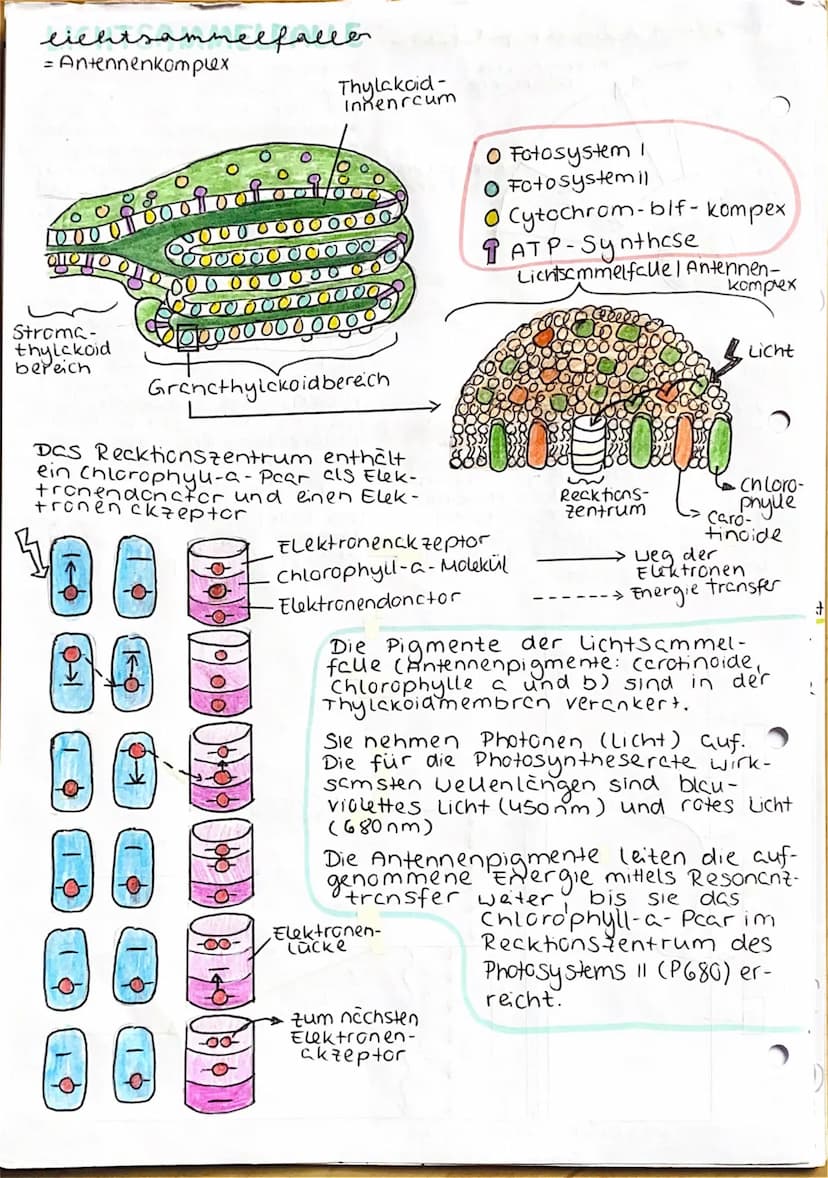 Lichtsammelfalle
= Antennenkomplex
Thylakoid-
innenraum
Fotosystem I
Fotosystem II
Cytochrom-b/f-kompex
ATP-Synthase
Lichtsammelfalle / Antennen-
komplex
Stroma-
thylakoid
bereich
Granathylakoidbereich
Licht
Reaktions-
zentrum
Chloro-
phylle
Caro-
tinoide
Das Reaktionszentrum enthält
ein Chlorophyll-a-Paar als Elek-
tronendonator und einen Elek-
tronenakzeptor
Elektronenakzeptor
Chlorophyll-a-Molekül
Elektronendonator
Weg der
Elektronen
Energietransfer
Die Pigmente der Lichtsammel-
falle (Antennenpigmente: Carotinoide,
Chlorophylle a und b) sind in der
Thylakoidmembran verankert.
Sie nehmen Photonen (Licht) auf.
Die für die Photosyntheserate wirk-
samsten Wellenlängen sind blau-
violettes Licht (450nm) und rotes Licht
(680nm)
Die Antennenpigmente leiten die auf-
genommene Energie mittels Resonanz-
transfer weiter, bis sie das
Chlorophyll-a-Paar im
Reaktionszentrum des
Photosystems II (P680) er-
reicht.
Elektronen-
lücke
zum nächsten
Elektronen-
akzeptor